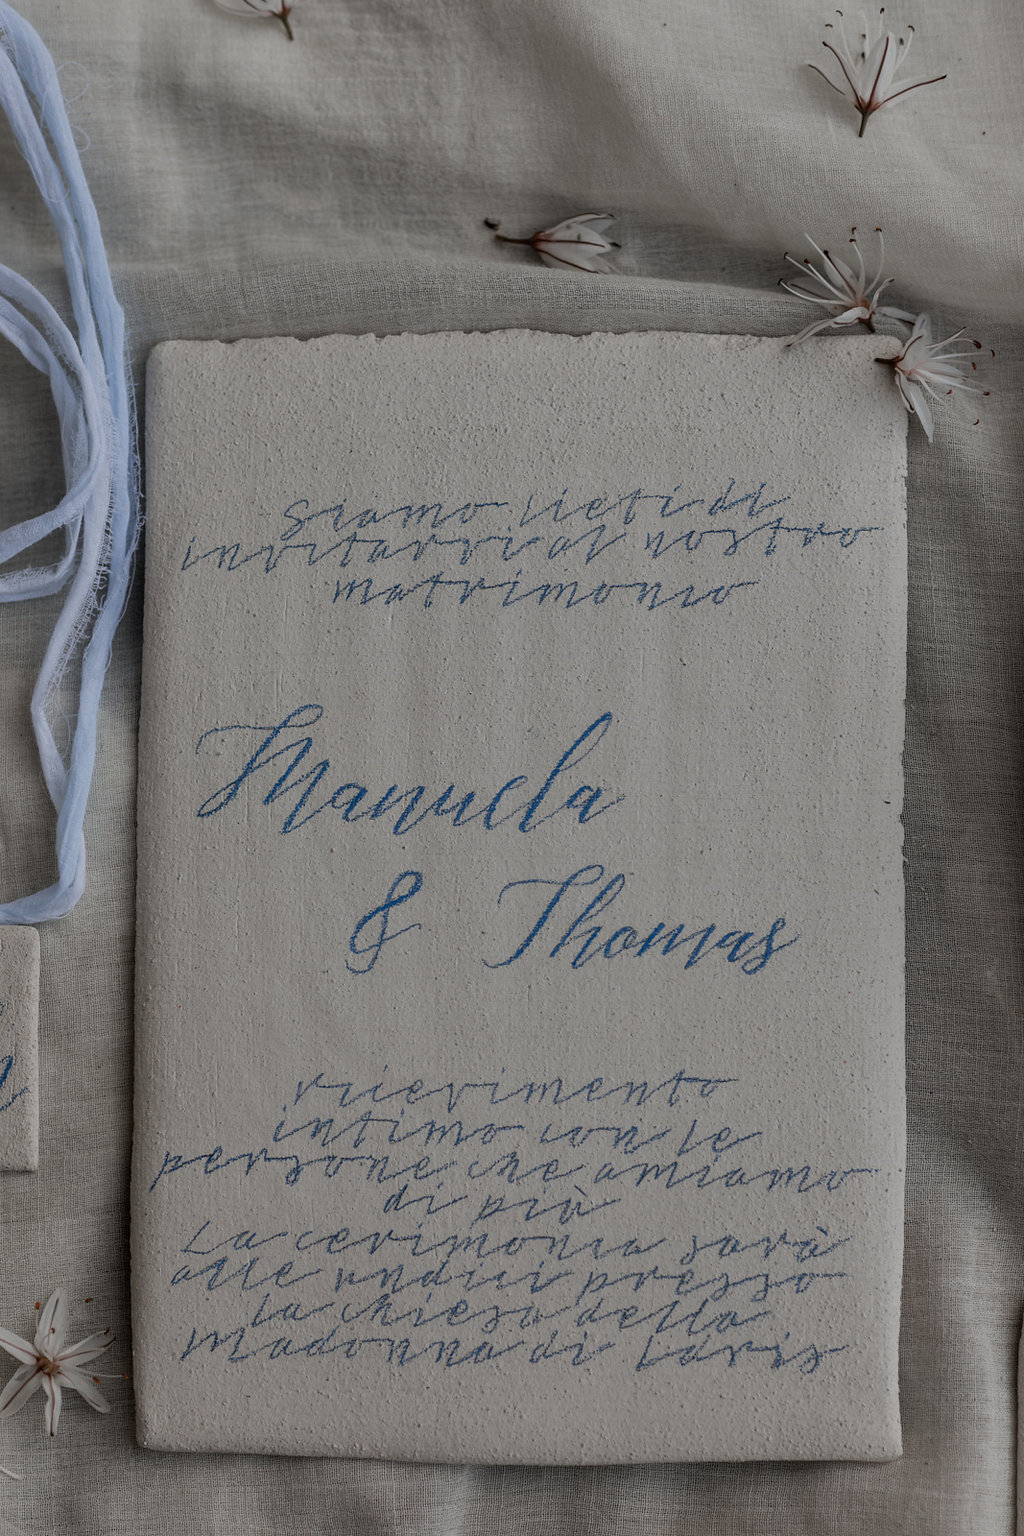 Siamo lieti di
invitarvi al nostro
matrimonio
Manuela
& Thomas
ricevimento
intimo con le
persone che amiamo
di più
La cerimonia sarà
alle undici presso
la chiesa della
Madonna di Loris